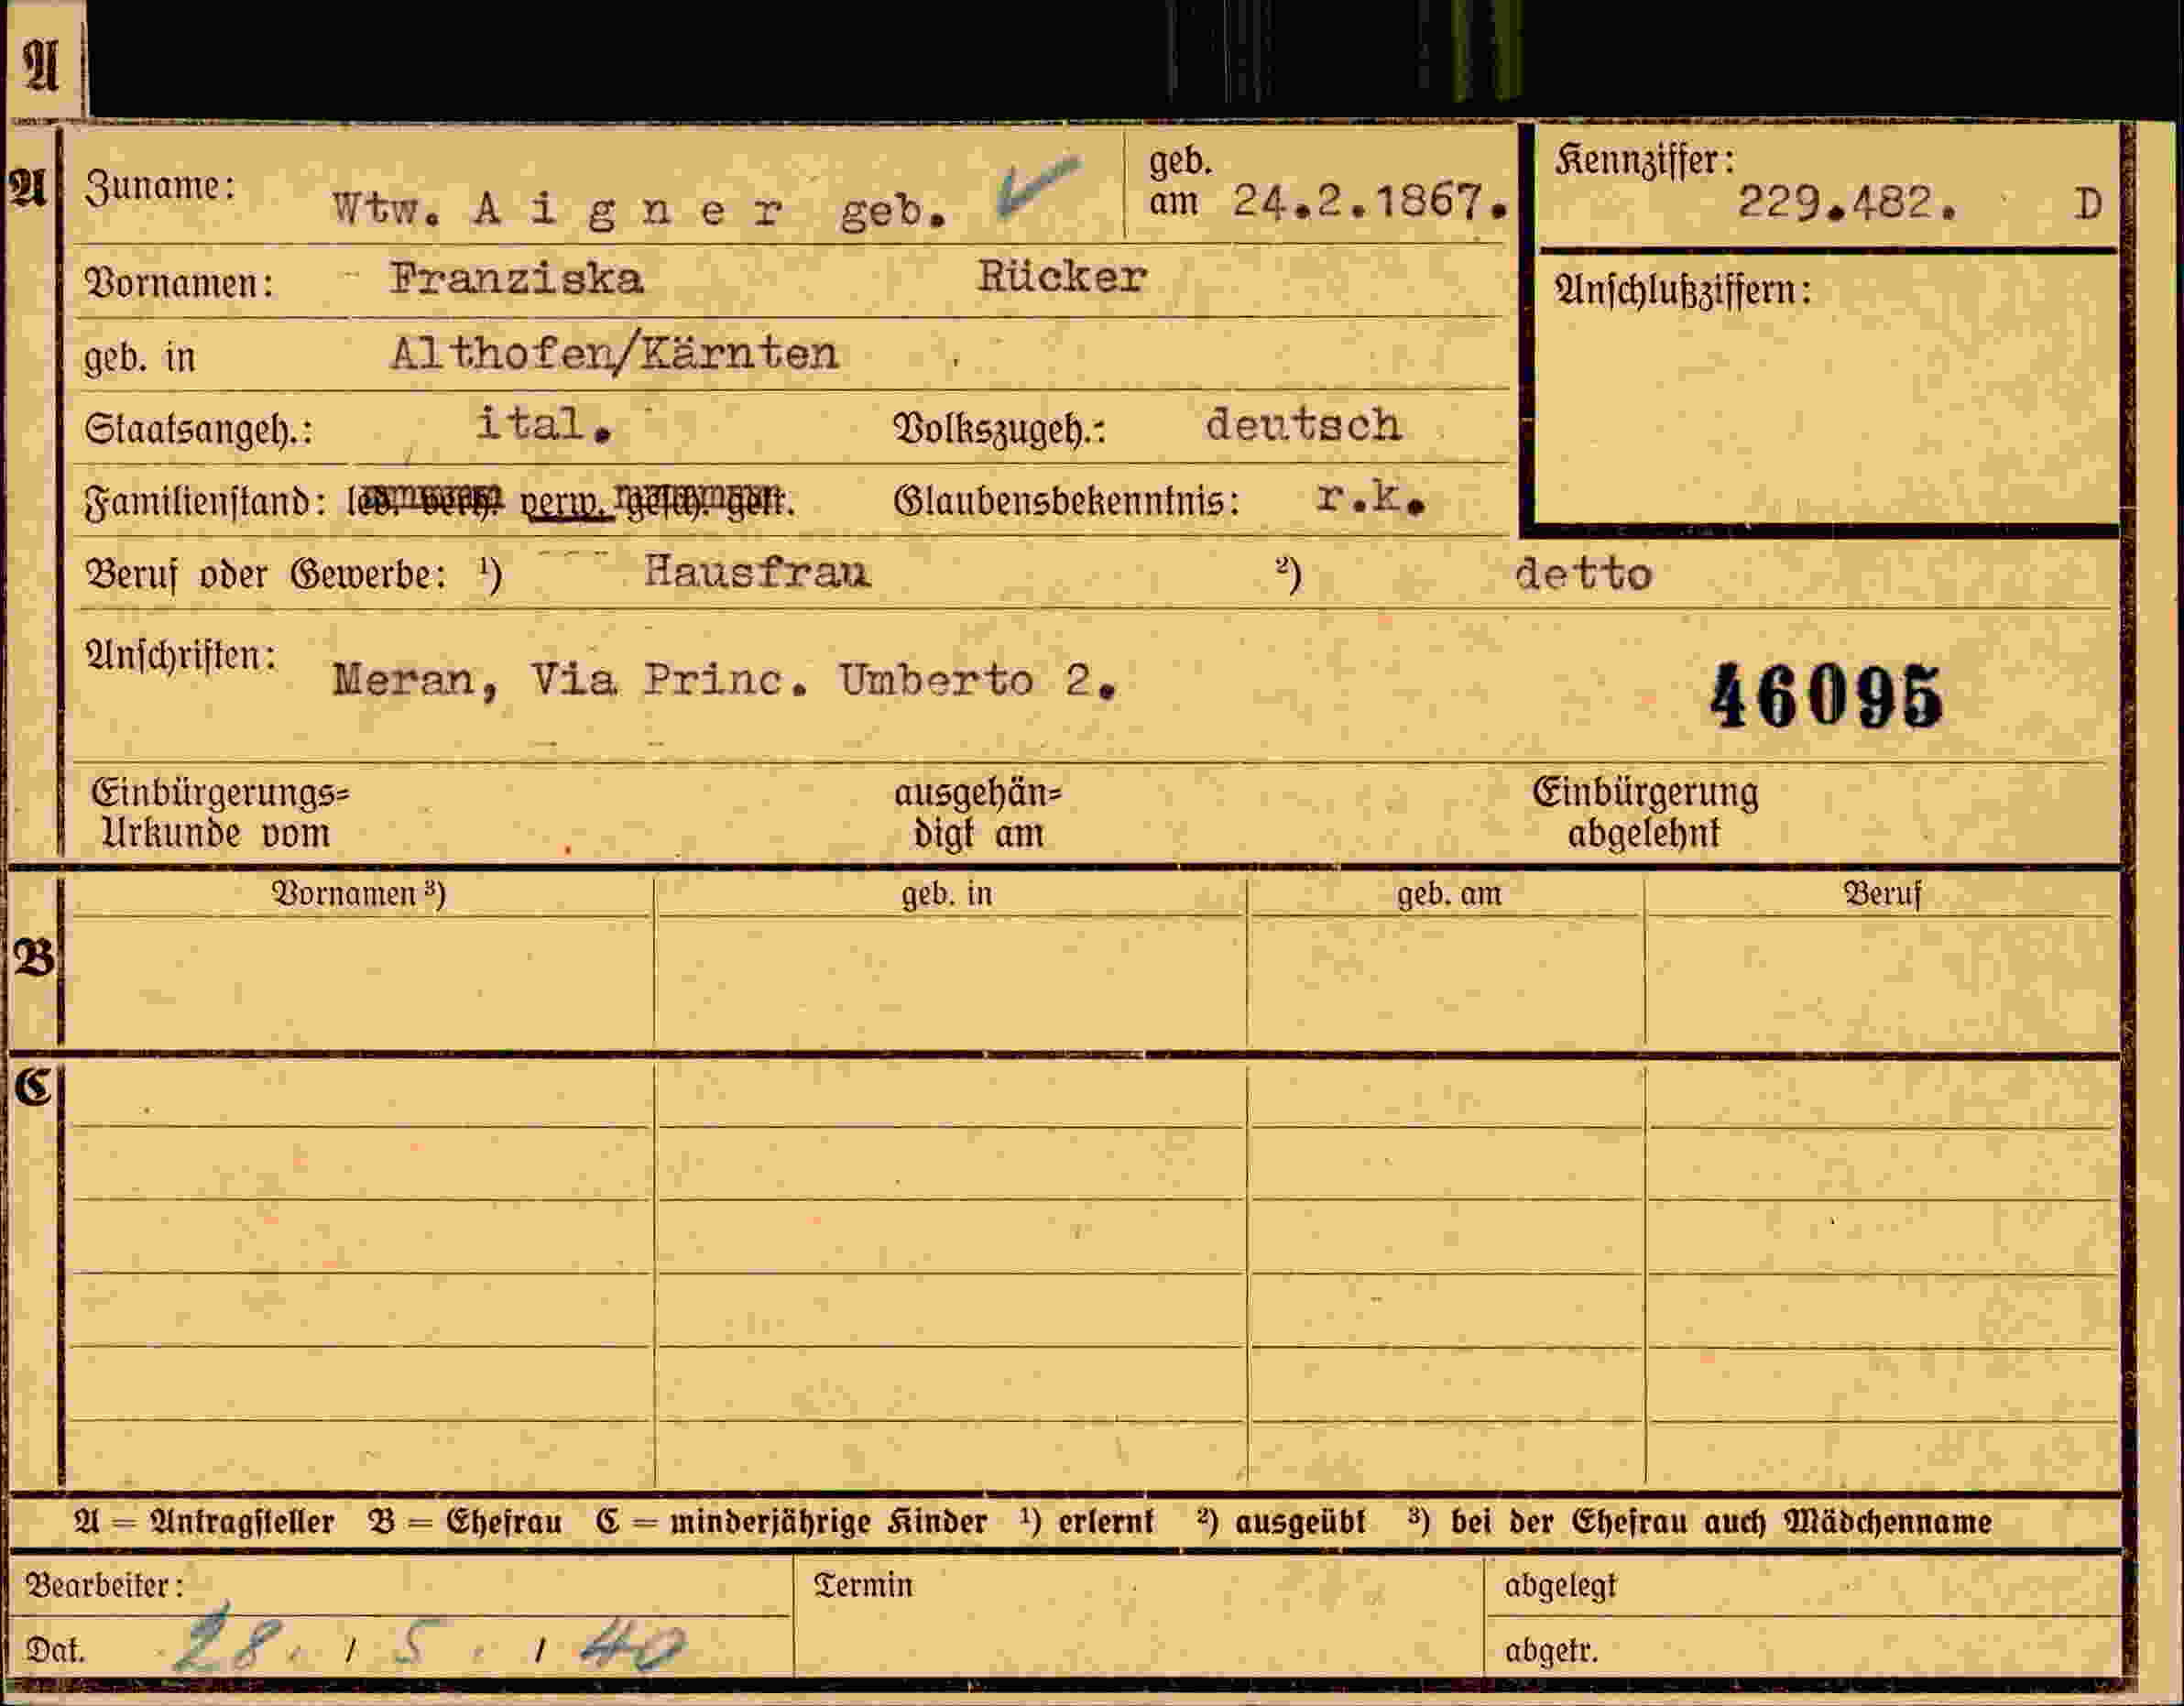 A
A Zuname: Wtw. A i g n e r geb. geb. am 24.2.1867. Kennziffer: 229.482. D
Vornamen: Franziska Rücker Anschlußziffern:
geb. in Althofen/Kärnten
Staatsangeh.: ital. Volkszugeh.: deutsch
Familienstand: verw. Glaubensbekenntnis: r.k.
Beruf oder Gewerbe: ¹) Hausfrau ²) detto
Anschriften: Meran, Via Princ. Umberto 2. 46095
Einbürgerungs= ausgehän= Einbürgerung
Urkunde vom digt am abgelehnt
Vornamen ³) geb. in geb. am Beruf
B
C
A = Antragsteller B = Ehefrau C = minderjährige Kinder ¹) erlernt ²) ausgeübt ³) bei der Ehefrau auch Mädchenname
Bearbeiter: Termin abgelegt
Dat. 28. / 5. / 40 abgetr.